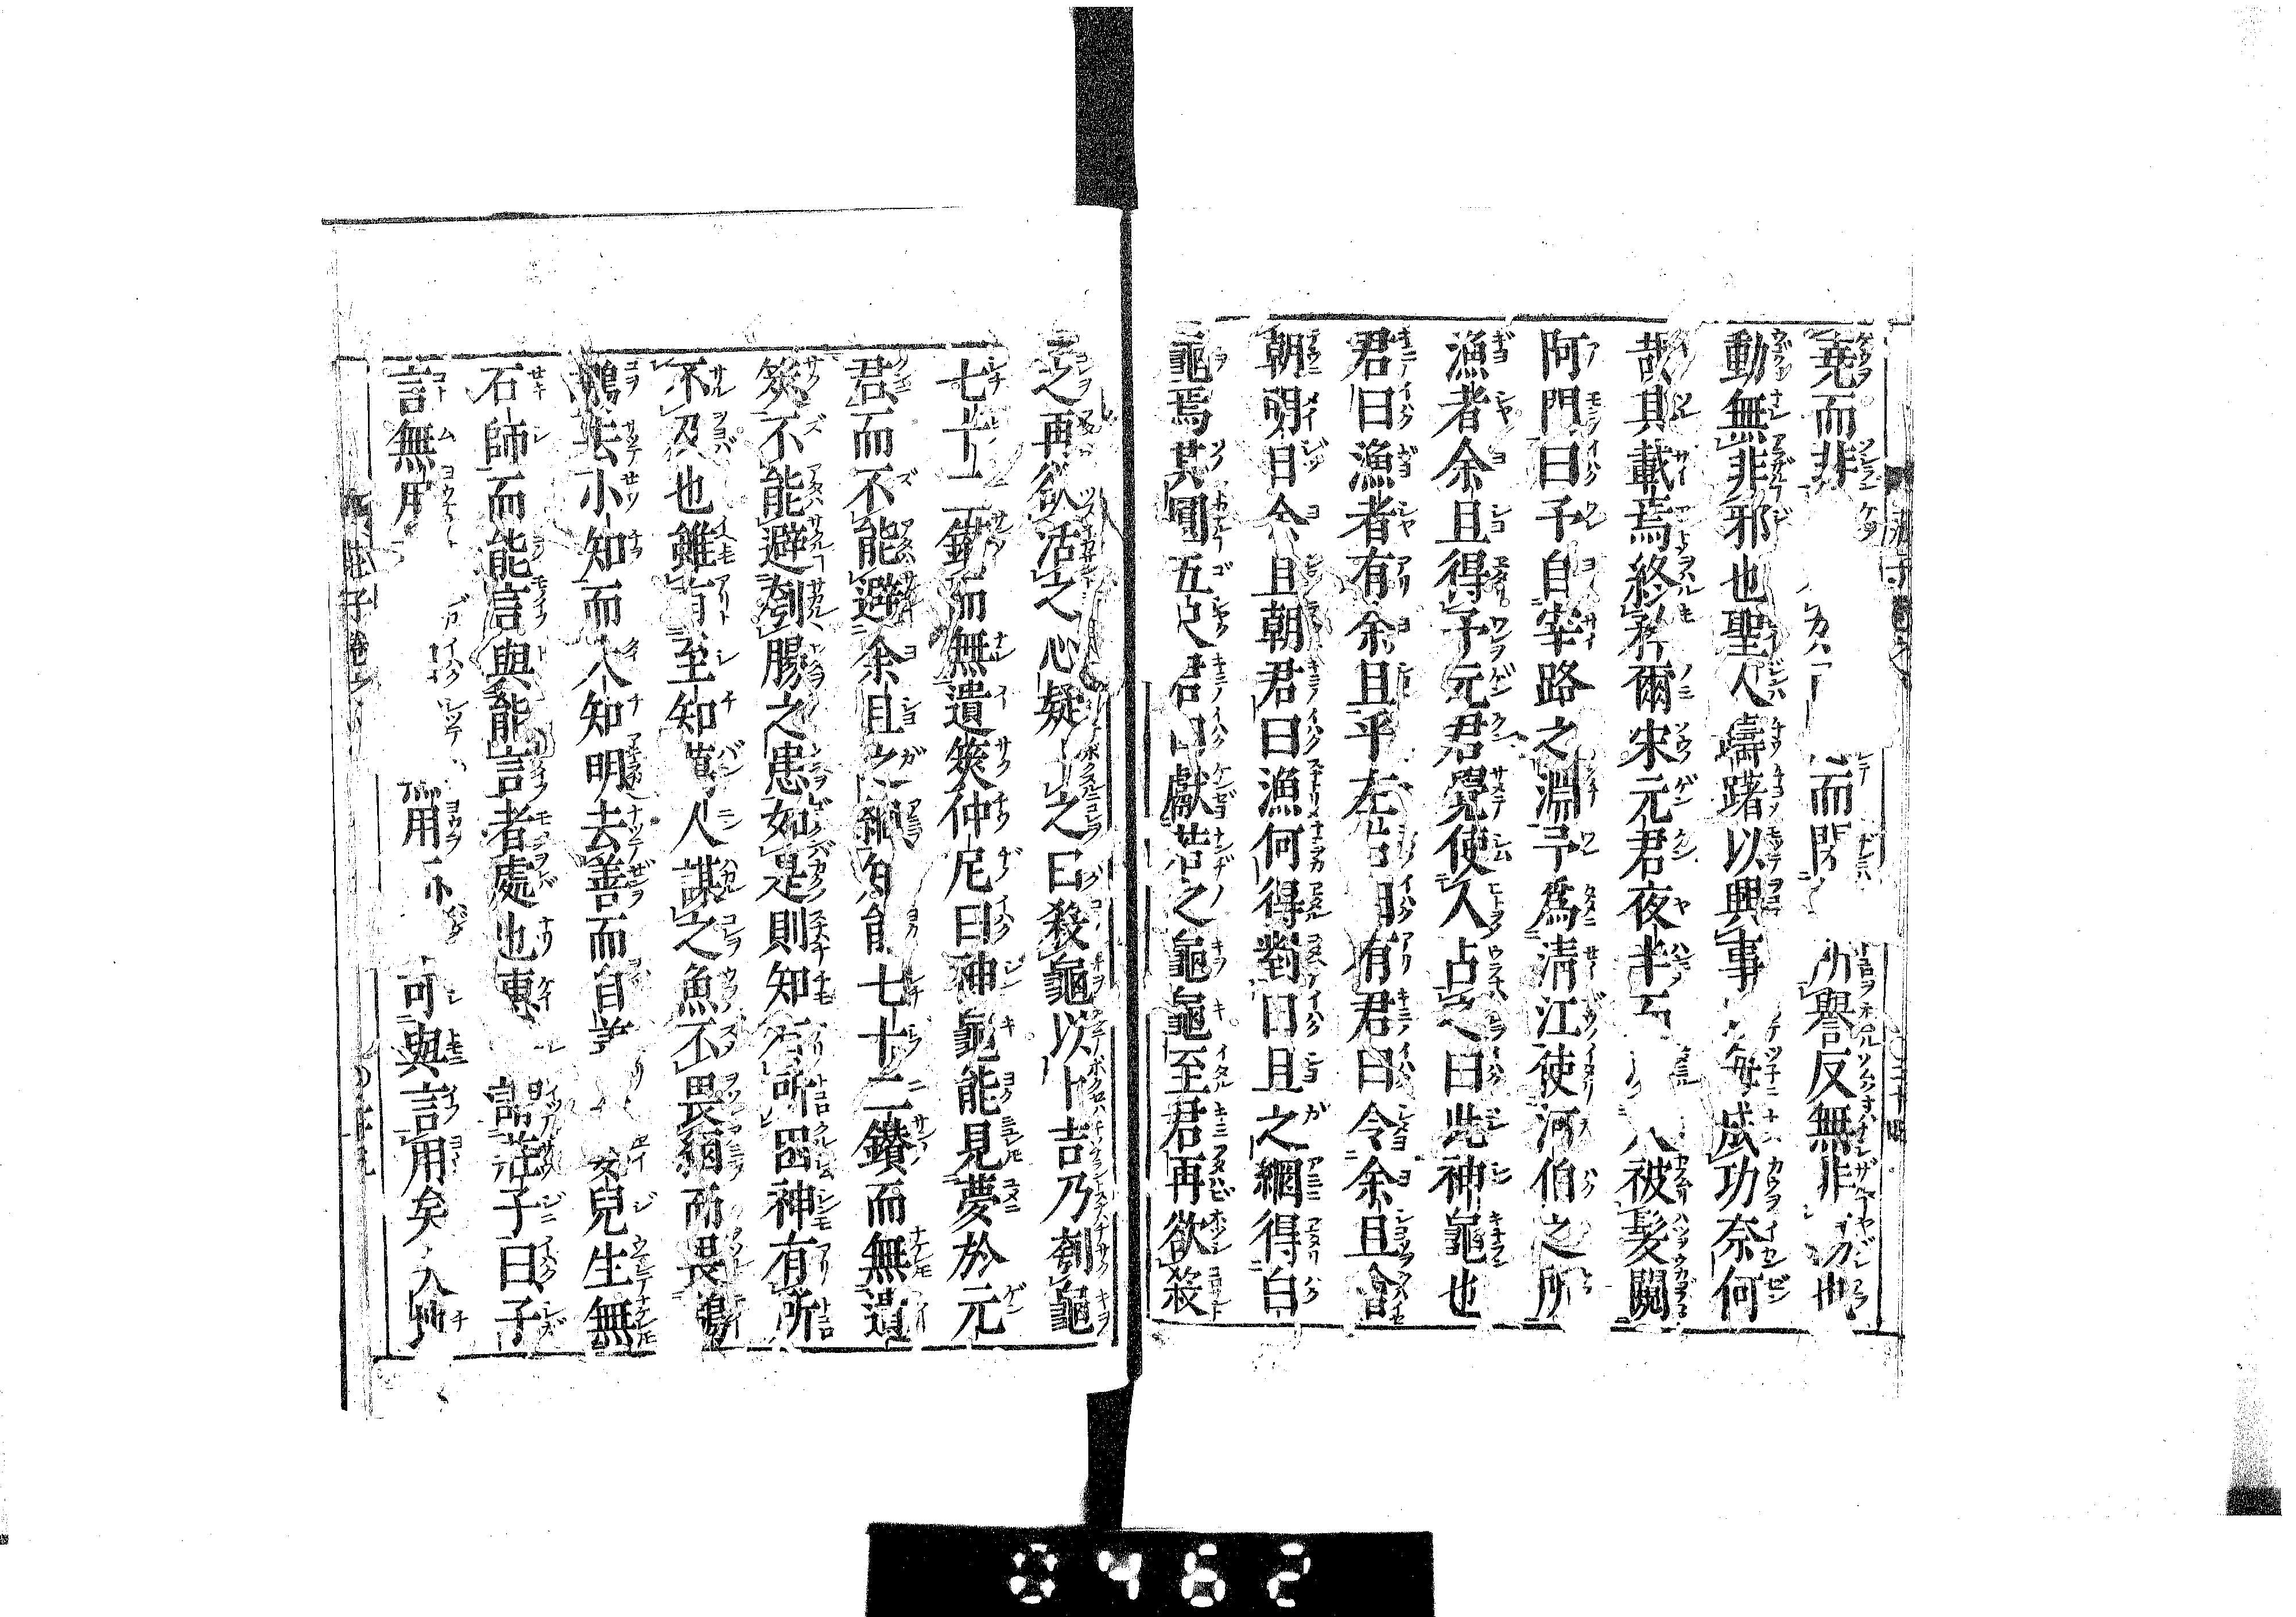 堯而非 而閉 所譽反無非 也
動無非邪也聖人躊躇以興事 每成功奈何
哉其載焉終矜爾宋元君夜半 人被髮闚
阿門曰予自宰路之淵予爲清江使河伯之所
漁者余且得予元君覺使人占之曰此神龜也
君曰漁者有余且乎左右曰有君曰令余且會
朝明日余且朝君曰漁何得對曰且之網得白
龜焉其圓五尺君曰獻若之龜龜至君再欲殺
之再欲活之心疑卜之曰殺龜以卜吉乃刳龜
七十二鑽而無遺筴仲尼曰神龜能見夢於元
君而不能避余且之網知能七十二鑽而無遺
筴不能避刳腸之患如是則知有所困神有所
不及也雖有至知萬人謀之魚不畏網而畏鵜
鶘去小知而大知明去善而自善 嬰兒生無
石師而能言與能言者處也惠 謂莊子曰子
言無用 用 可與言用矣
莊子卷
0462